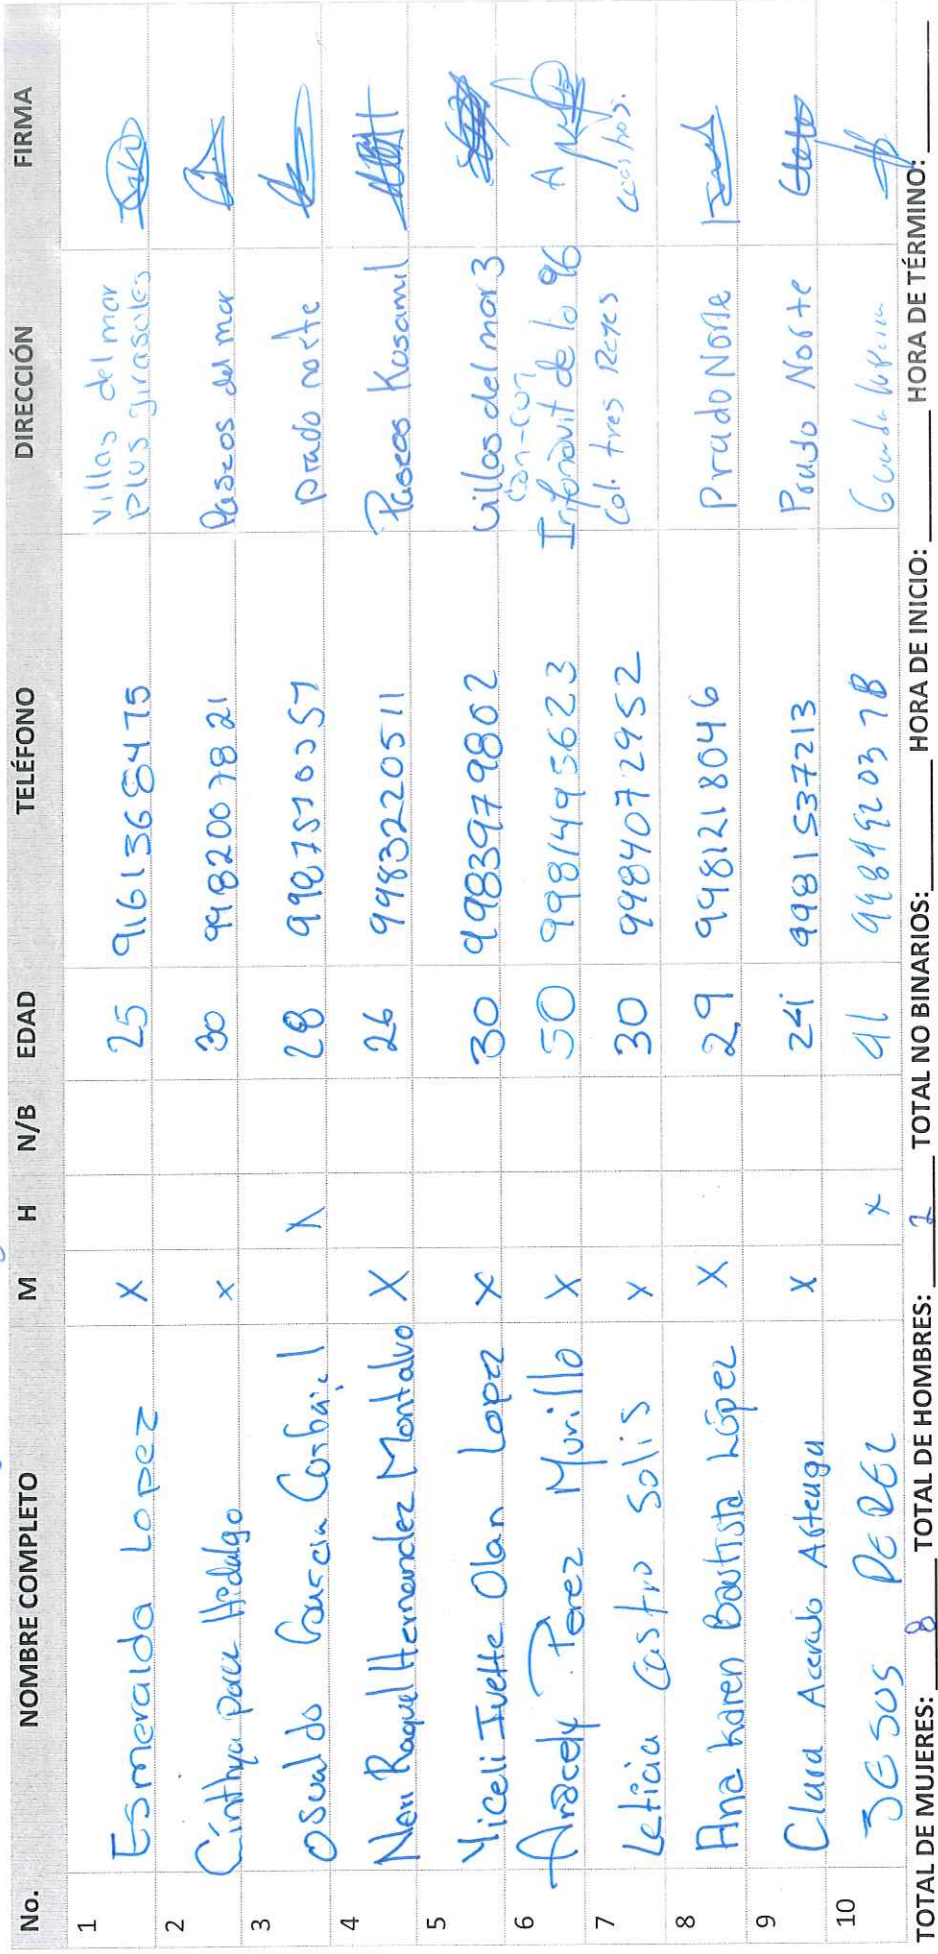 No. NOMBRE COMPLETO M H N/B EDAD TELÉFONO DIRECCIÓN FIRMA
1 Esmeralda Lopez X 25 9161368475 Villas del mar
plus girasoles
2 Cinthya pacu Hidalgo x 30 9982007821 Paseos del mar
3 Osualdo Garcia Carbajal X 28 9987510357 prado norte
4 Neri Raquel Hernandez Montalvo X 26 9983220511 Paseos Kusamil
5 Yiceli Ivette Olan Lopez X 30 9983979802 Villas del mar 3
can-cun
6 Aracely Perez Murillo X 50 9981495623 Infonavit de la 96
7 Leticia Castro Solis x 30 9984072952 Col. tres Reyes
8 Ana Karen Bautista López X 29 9981218046 Prado Norte
9 Clara Acevedo Asteaga X 24 9981537213 Prado Norte
10 JESUS PEREZ x 41
TOTAL DE MUJERES: 8 TOTAL DE HOMBRES: 2 TOTAL NO BINARIOS: HORA DE INICIO: HORA DE TÉRMINO: